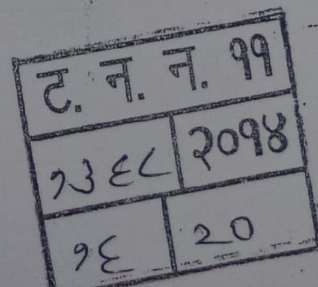 ट. न. न. ११
१३६८ २०१४
१६ २०